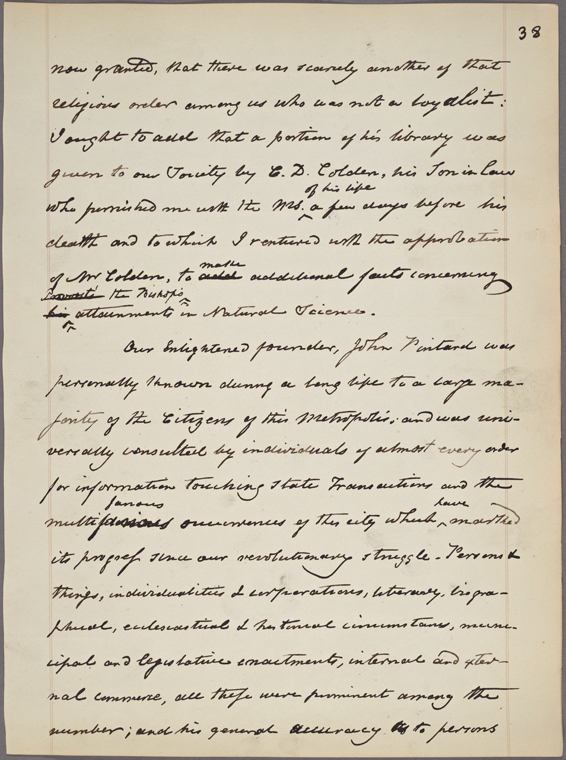 38
now granted, that there was scarcely another of that
religious order among us who was not a loyalist:
I ought to add that a portion of his library was
given to our Society by C. D. Colden, his Son in Law
of his life
who furnished me with the Ms. a few days before his
death and to which I ventured with the approbation
of Mr Colden, to add make additional facts concerning
the Bishop's
his attainments in Natural Science.
Our Enlightened founder, John Pintard was
personally known during a long life to a large ma-
jority of the Citizens of this Metropolis; and was uni-
versally consulted by individuals of almost every order
for information touching State Transactions and the
farious have
multif occurrences of this city which, marked
its progress since our revolutionary struggle. Persons &
things, individualities & corporations, literary, biogra-
phical, ecclesiastical & historical circumstances, muni-
cipal and legislative enactments, internal and exter-
nal commerce, all these were prominent among the
number; and his general accuracy as to persons